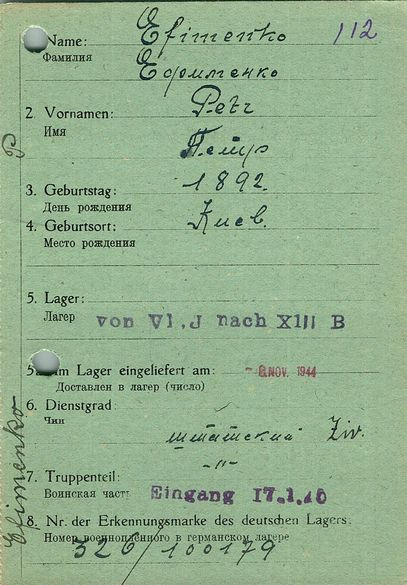 Name: Efimenko 112
Фамилия Ефименко
2. Vornamen: Petr
Имя Петр
3. Geburtstag: 1892.
День рождения
4. Geburtsort: Киев.
Место рождения
5. Lager:
Лагер von VI.J nach XIII B
5a. Im Lager eingeliefert am: NOV. 1944
Доставлен в лагер (число)
6. Dienstgrad:
Чин
штатский Ziv.
7. Truppenteil: -"-
Воинская часть Eingang 17.1.46
8. Nr. der Erkennungsmarke des deutschen Lagers:
Номер военнопленного в германском лагере
326/100179
P
Efimenko